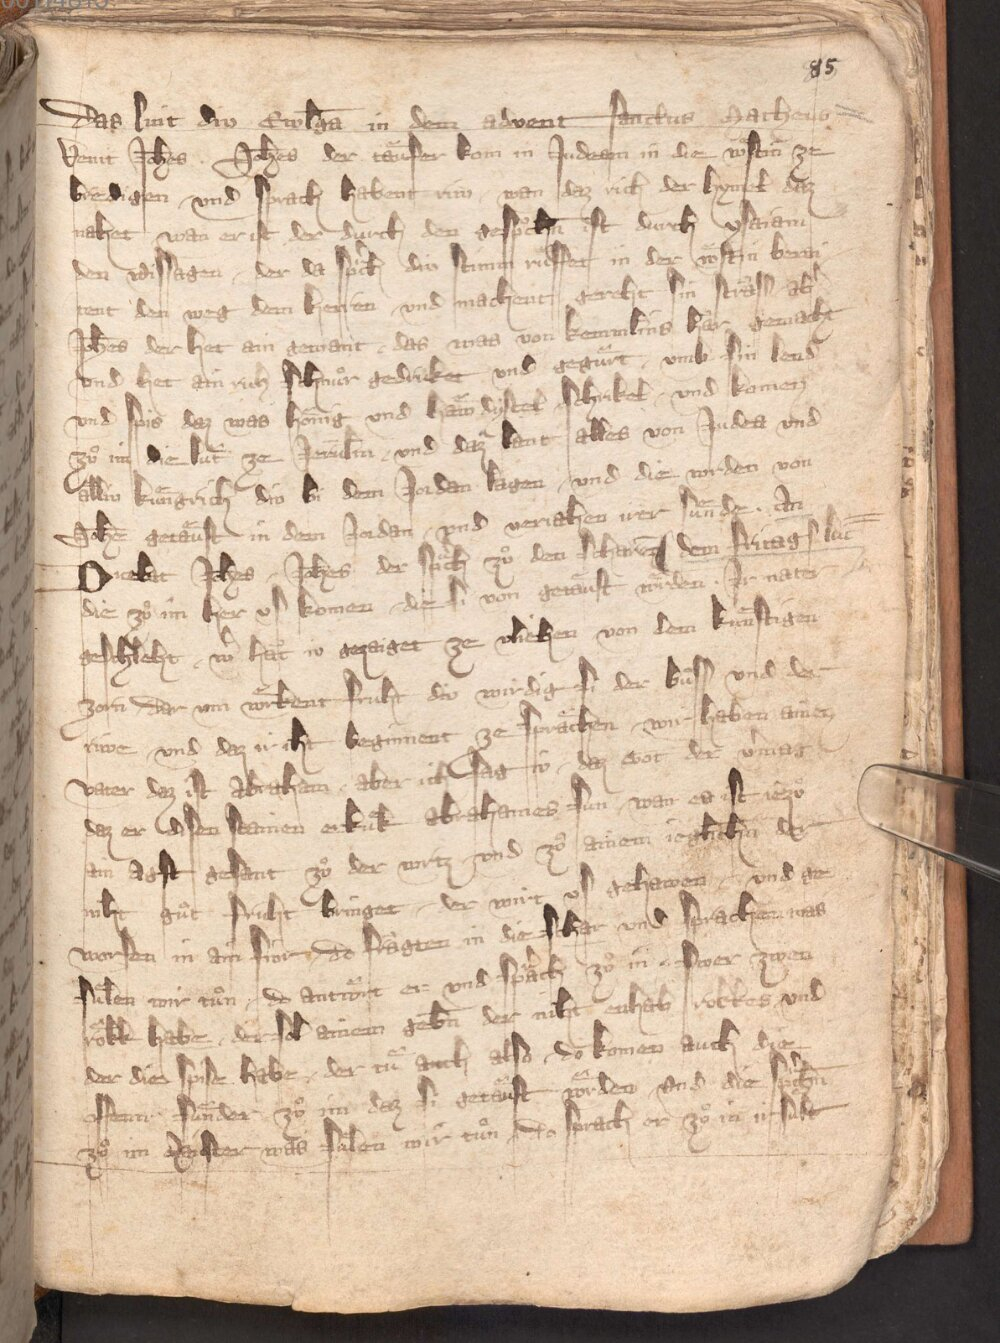 85
Das list diu Ewlga in dem advent Sanctus Matheus
Venit Johes . Johes der täufer kom in Judeam in die wͤstin ze
bredigen . vnd sprach habent riw . wan daz rich der hymel daz
nahet . wan er ist der durch den gesprochn ist durch ysaiam
den wissagen . der da sprch diu stimm rüffet in der wͤstin berai
tent den weg dem herren . vnd machent gereht sin strass
Johes der het ain gewant . das was von kemmlins har gemacht
vnd het ain rich schnuͦr gedriket vnd gegürt . vmb sin lend
vnd spis daz was honig vnd haw schrikel . vnd komen
zuͦ im die lüt ze Jerusalm . vnd daz lant alles von Judea vnd
alliu küngrich diu bi dem Jordan lagen . vnd die wrden von
Johe getäuft in dem Jordan . vnd veriahen irer sünde . An
Dicebat Johes . Johes der sprch zuͦ den scharen dem fritag luc
die zuͦ im her vs komen . die si von getäuft würden . Ir nater
geschleht . wer hat iv gezaiget ze vliehen von dem künftigen
zorn . dar vm würkent fruht diu wirdig si der buͦss vnd der
riwe . vnd daz ir iht beginnent ze sprächen . wir haben ainen
vater daz ist Abraham . aber ich sag iv . daz Got der vermag
daz er disen stainen erkük abrahames sun . wan es ist iezo
ain agst gesant zuͦ der wrtz . vnd zuͦ ainem ieglichn der
niht guͦt fruht bringet . der wirt vs gehawen . vnd ge
worfen in ain fiwr . do fragten in die schar vnd sprachen was
sülen wir tuͦn . do antwort er vnd sprach zuͦ in . swer zwen
rökk habe . der sol ainem gebn der niht enhab rokkes vnd
der die spise habe . der tuͦ auch also . do komen auch die
offenn sünder zuͦ im daz si getäuft würden vnd die sprchn
zuͦ im Maister was sülen wir tuͦn . do sprach er zuͦ in ir sült